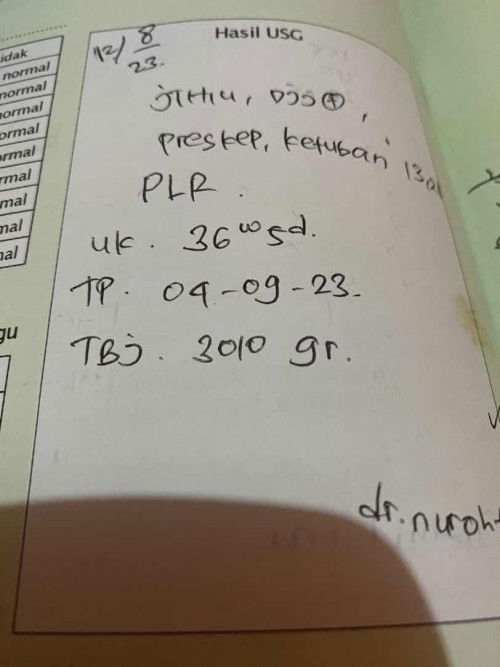 Hasil USG
12/8
23.
JTHIU, DJJ ⊕,
preskep, ketuban
PLR.
UK. 36 w 5 d.
TP. 04-09-23.
TBJ. 3010 gr.
dr.
idak
normal
normal
ormal
ormal
ormal
rmal
mal
mal
nal
gu